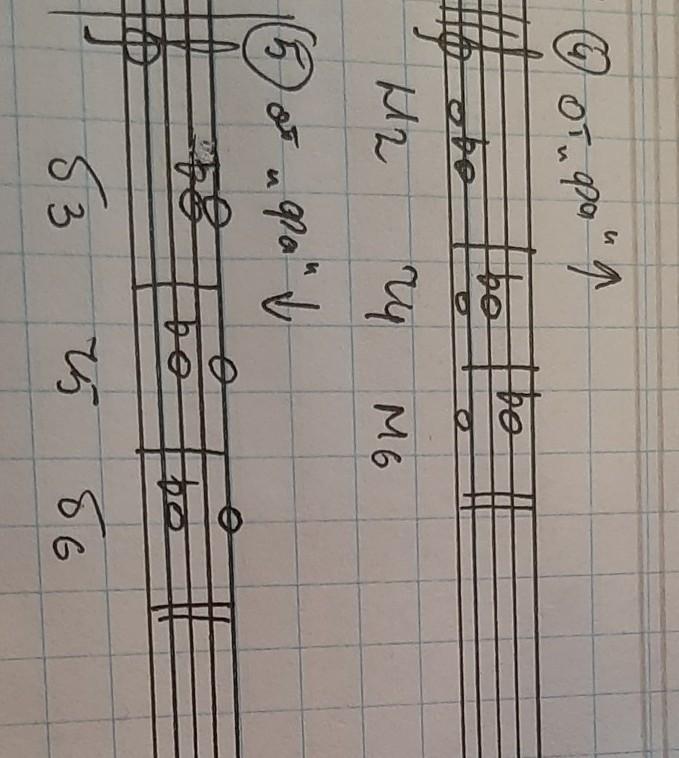 ④ от „фа" ↑
м2 ч4 м6
⑤ от „фа" ↓
б3 ч5 б6